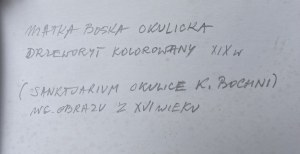 MATKA BOSKA OKULICKA
DRZEWORYT KOLOROWANY XIX W
(SANKTUARIUM OKULICE K. BOCHNI)
WG. OBRAZU Z XVI WIEKU